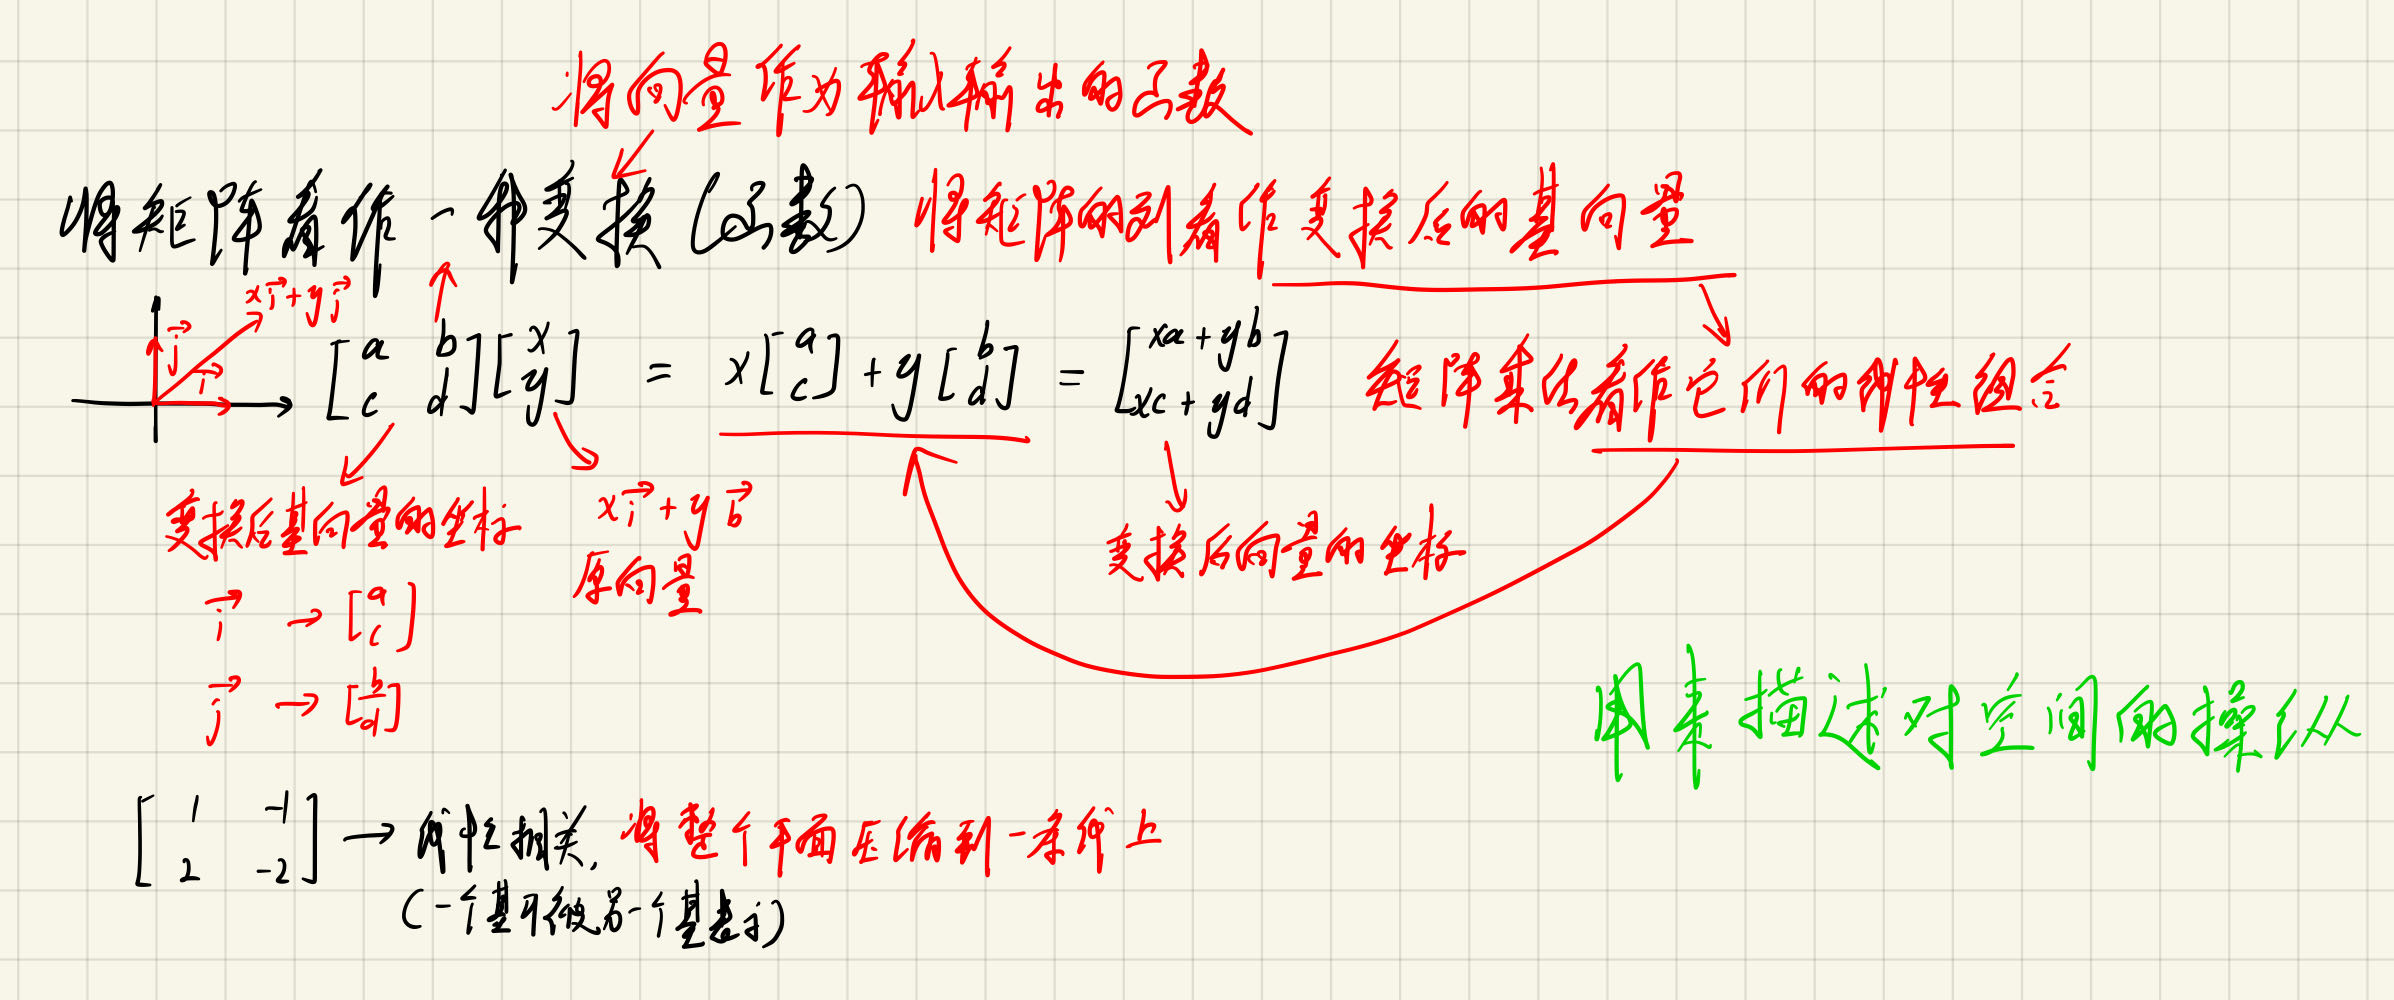 将向量作为输入输出的函数
将矩阵看作一种变换(函数) 将矩阵的列看作变换后的基向量
x\vec{i}+y\vec{j}
\vec{j}
\vec{i}
[a b; c d][x; y] = x[a; c] + y[b; d] = [xa+yb; xc+yd] 矩阵乘法看作它们的线性组合
变换后基向量的坐标
x\vec{i}+y\vec{b}
原向量
变换后向量的坐标
\vec{i} → [a; c]
\vec{j} → [b; d]
用来描述对空间的操纵
[1 -1; 2 -2] → 线性相关, 将整个平面压缩到一条线上
(一个基可被另一个基表示)